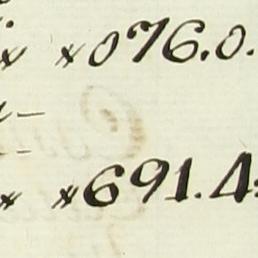 x x076.0.
x x691.4